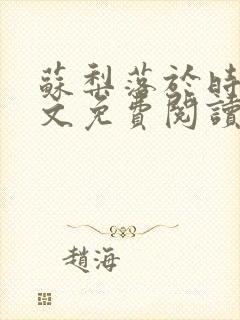 蘇梨落於時
文免費閱讀
趙海